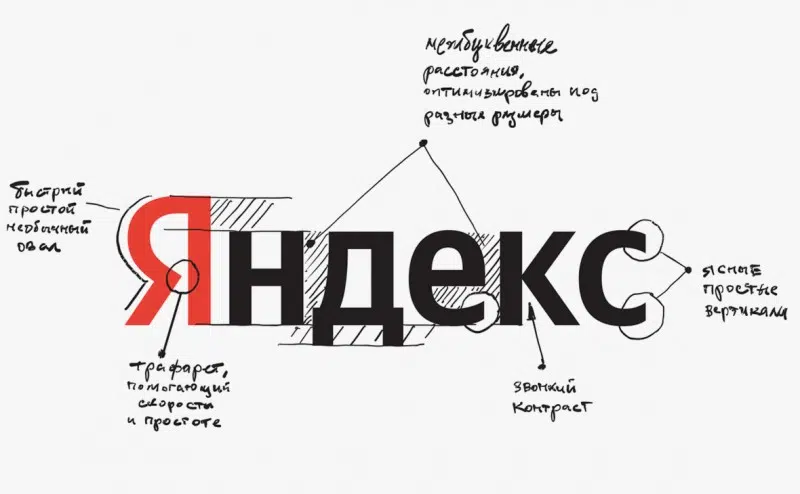 межбуквенные
расстояния,
оптимизированы под
разные размеры
быстрый
простой
необычный
овал
Яндекс
ясные
простые
вертикали
трафарет,
помогающий
скорости
и простоте
звонкий
контраст